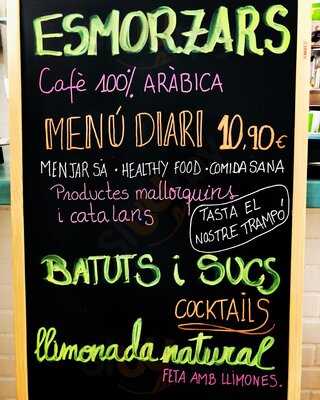 ESMORZARS
Cafè 100% ARÀBICA
MENÚ DIARI 10,90€
MENJAR SÀ · HEALTHY FOOD · COMIDA SANA
Productes mallorquins
i catalans
TASTA EL
NOSTRE TRAMPÓ!
BATUTS i SUCS
COCKTAILS
llimonada natural
FETA AMB LLIMONES.